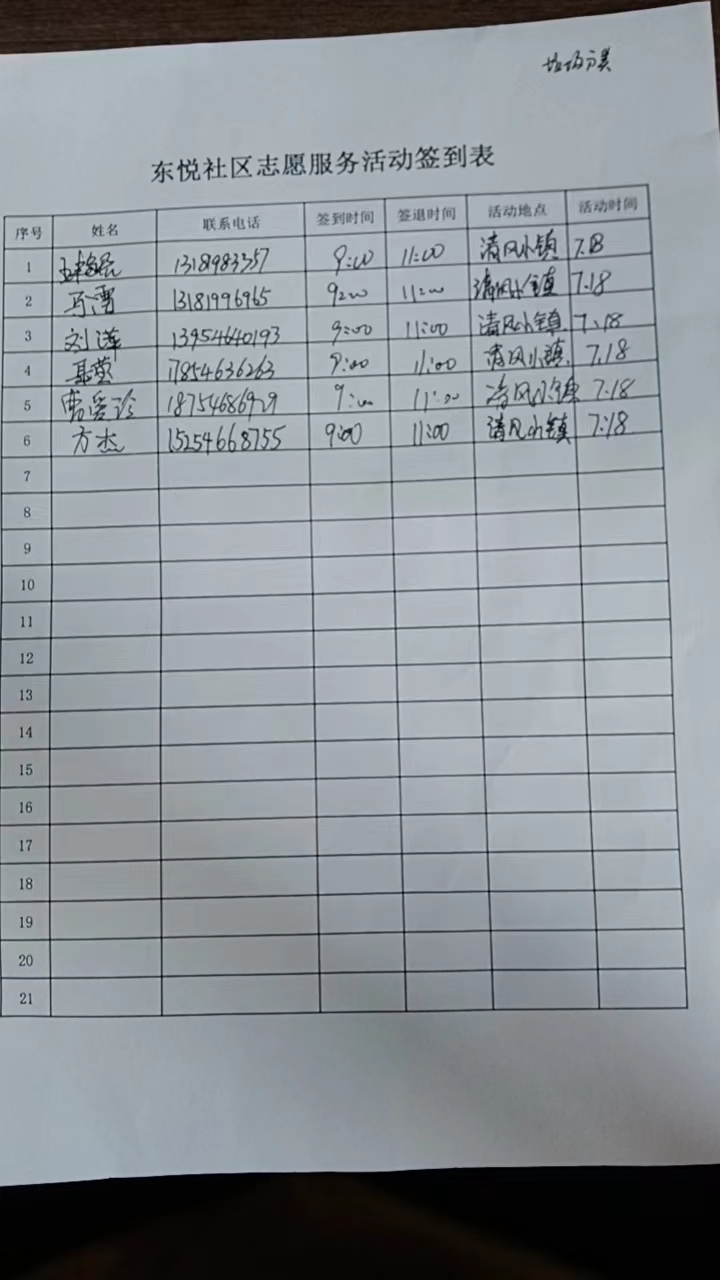 垃圾分类
东悦社区志愿服务活动签到表
序号 姓名 联系电话 签到时间 签退时间 活动地点 活动时间
1 1318983357 9:00 11:00 清风小镇 7.18
2 马雪 13181996965 9:00 11:00 清风小镇 7.18
3 刘萍 13954640193 9:00 11:00 清风小镇 7.18
4 聂莹 17854636263 9:00 11:00 清风小镇 7.18
5 18754686929 9:00 11:00 清风小镇 7.18
6 方杰 15254668755 9:00 11:00 清风小镇 7.18
7
8
9
10
11
12
13
14
15
16
17
18
19
20
21